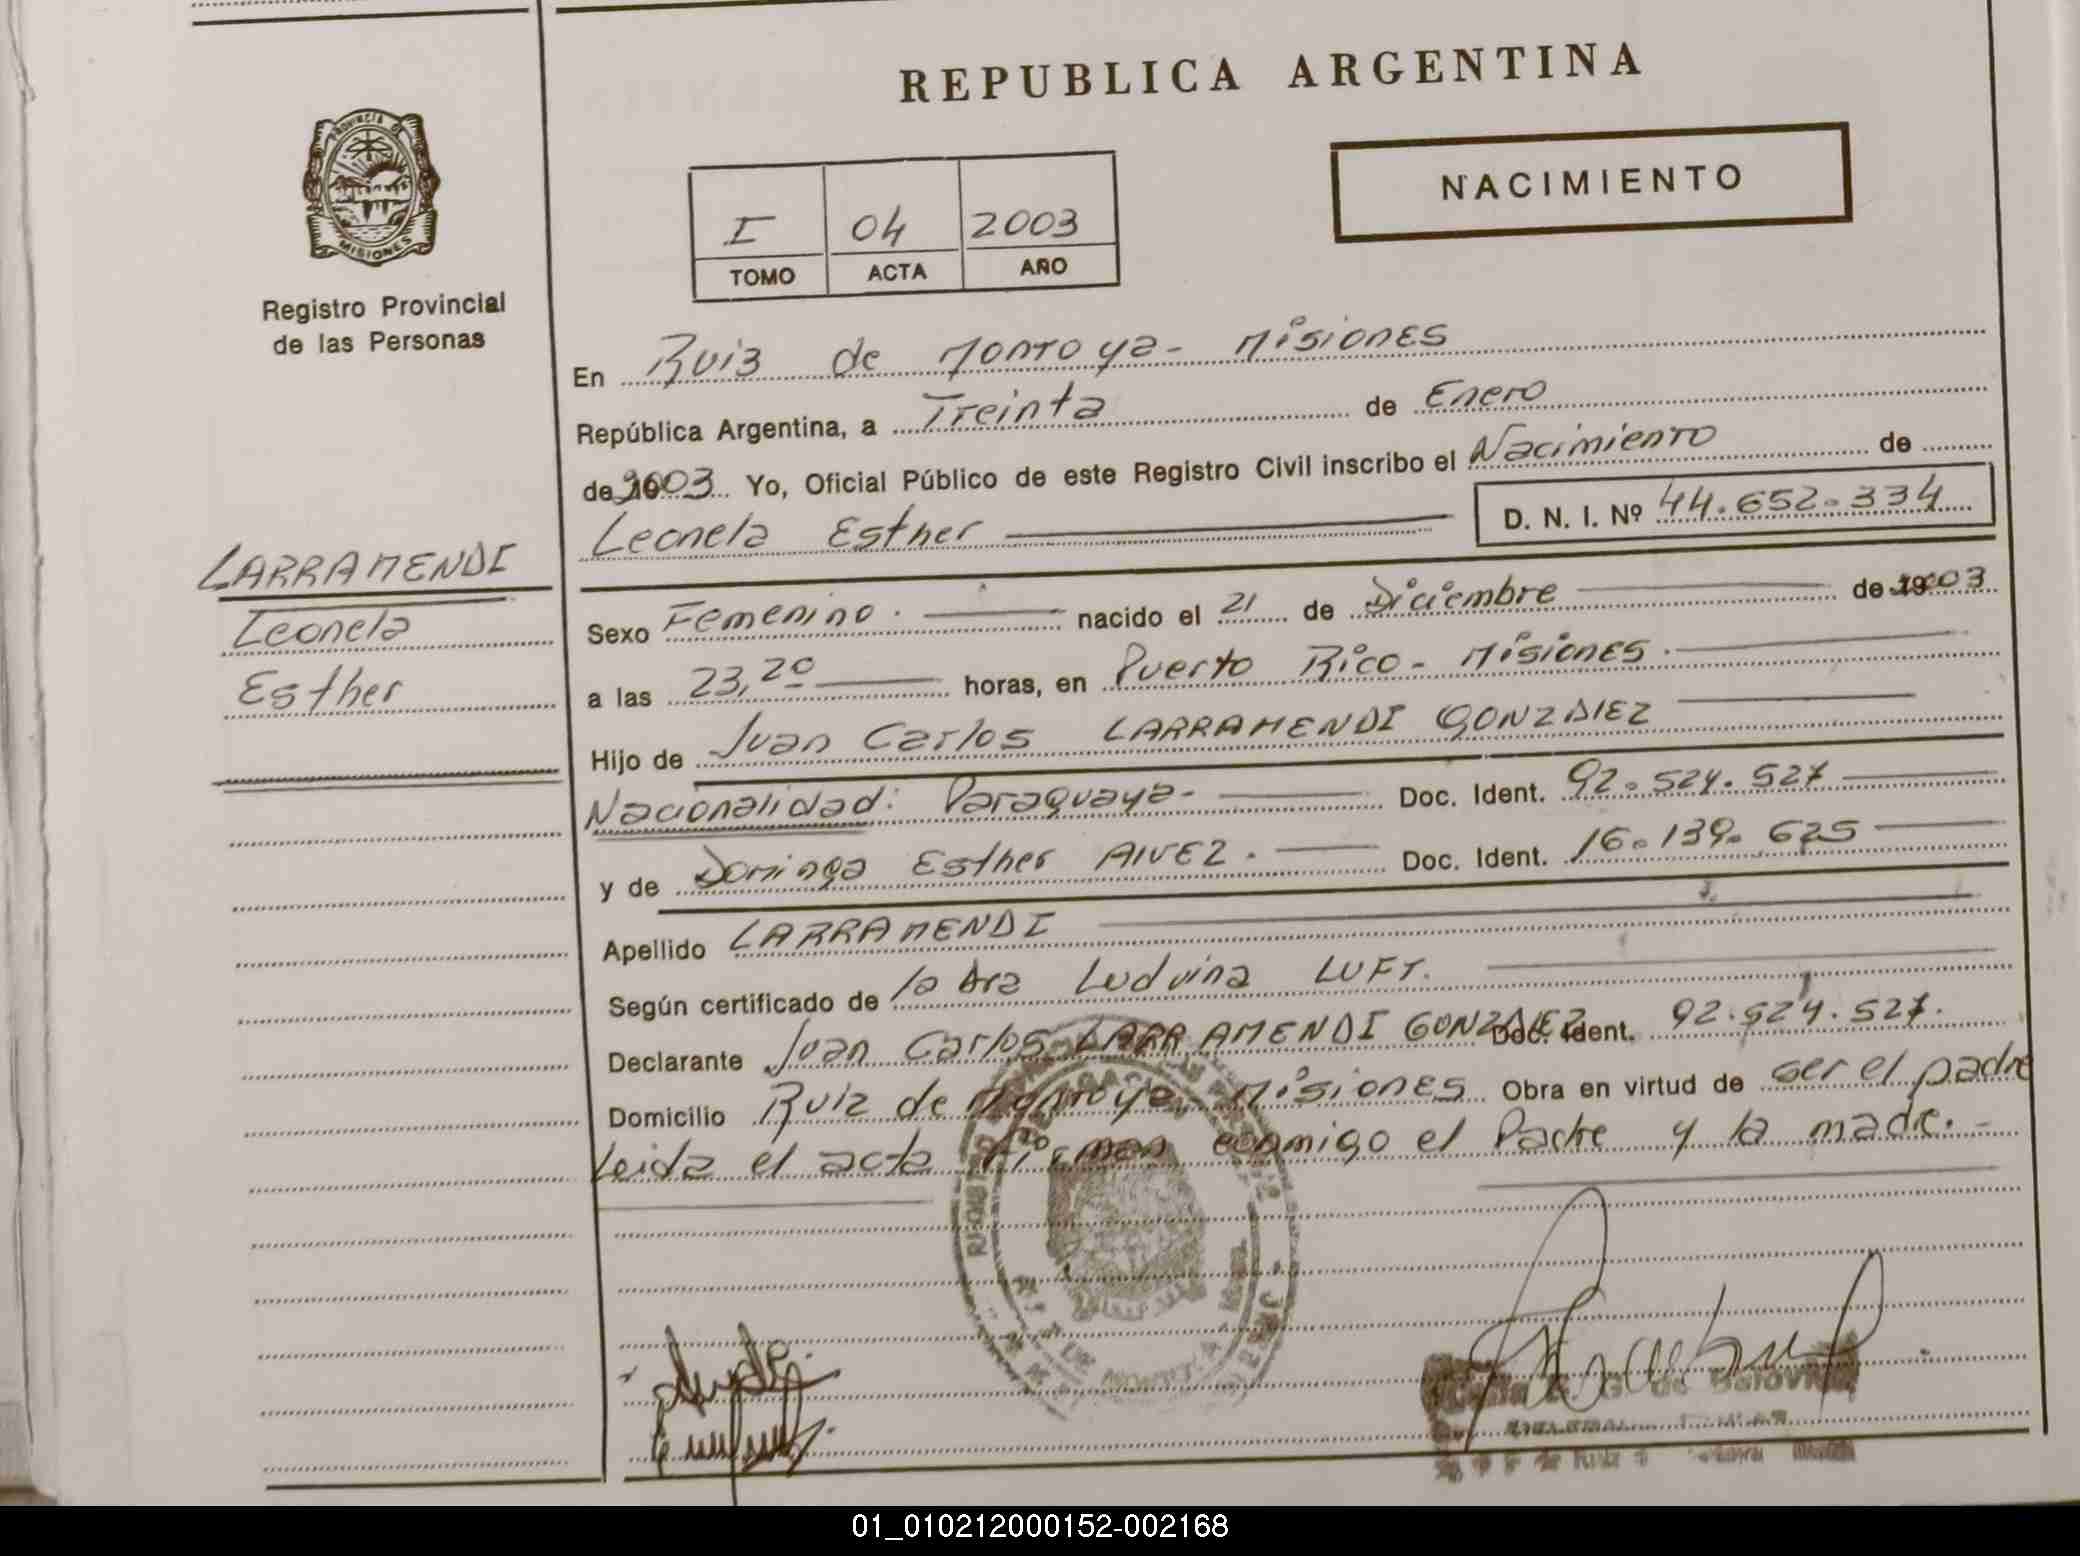 REPUBLICA ARGENTINA
NACIMIENTO
I 04 2003
TOMO ACTA AÑO
PROVINCIA DE
MISIONES
Registro Provincial
de las Personas
LARRAMENDI
Leonela
Esther
En Ruiz de Montoya - Misiones
República Argentina, a Treinta de Enero
de 2003 Yo, Oficial Público de este Registro Civil inscribo el Nacimiento de
Leonela Esther D. N. I. Nº 44.652.334
Sexo Femenino. nacido el 21 de Diciembre de 2003
a las 23,20 horas, en Puerto Rico - Misiones.
Hijo de Juan Carlos LARRAMENDI GONZALEZ
Nacionalidad: Paraguaya- Doc. Ident. 92.524.527
y de Dominga Esther AlVEZ. Doc. Ident. 16.139.625
Apellido LARRAMENDI
Según certificado de la dra Ludvina LUFT.
Declarante Juan Carlos LARRAMENDI GONZALEZ Doc. Ident. 92.524.527.
Domicilio Ruiz de Montoya, Misiones Obra en virtud de ser el padre
Leida el acta firman conmigo el Padre y la madre. -
01_010212000152-002168